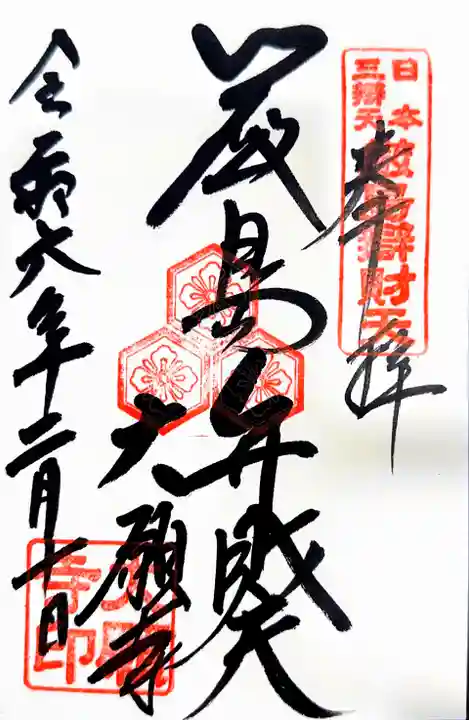 日本
三辯天
厳島辯財天
奉拝
厳島弁財天
大願寺
令和六年二月十日
大願寺印